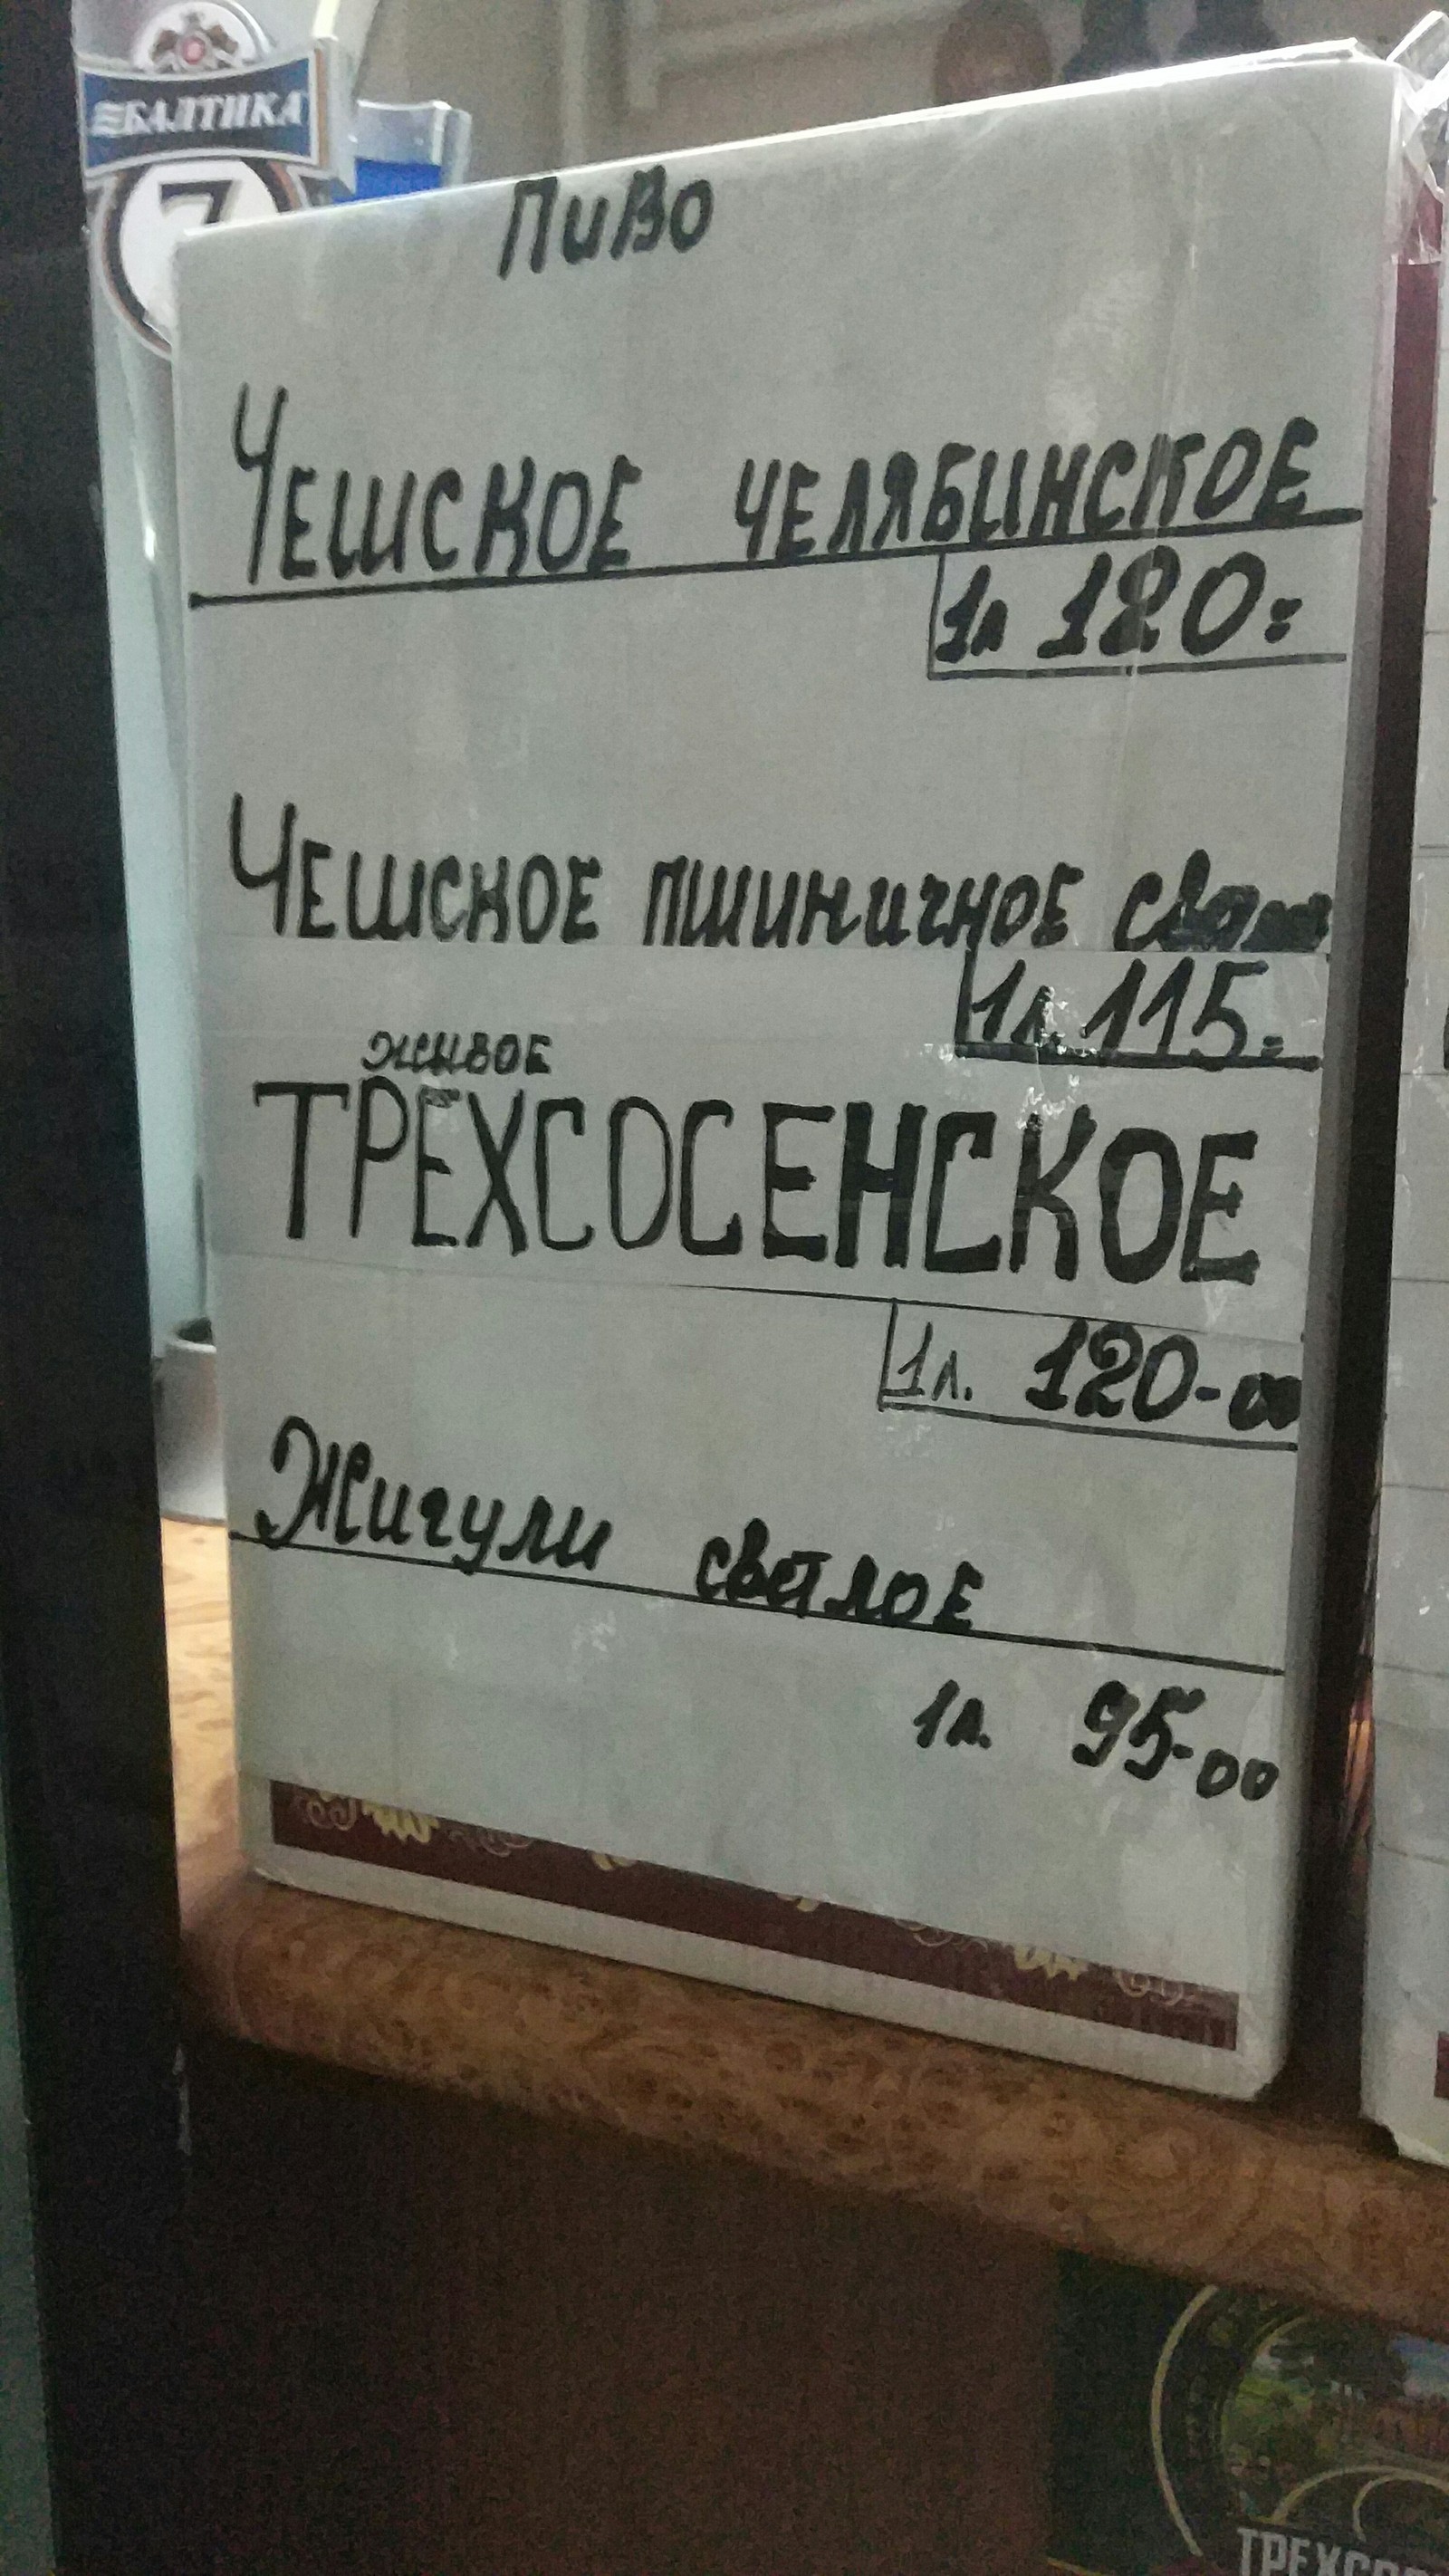 БАЛТИКА
7
ПиВо
ЧЕШСКОЕ ЧЕЛЯБИНСКОЕ
1л 120=
ЧЕШСКОЕ ПШИНИЧНОЕ
1л. 115=
живое
ТРЁХСОСЕНСКОЕ
1л. 120-00
Жигули светлое
1л. 95-00